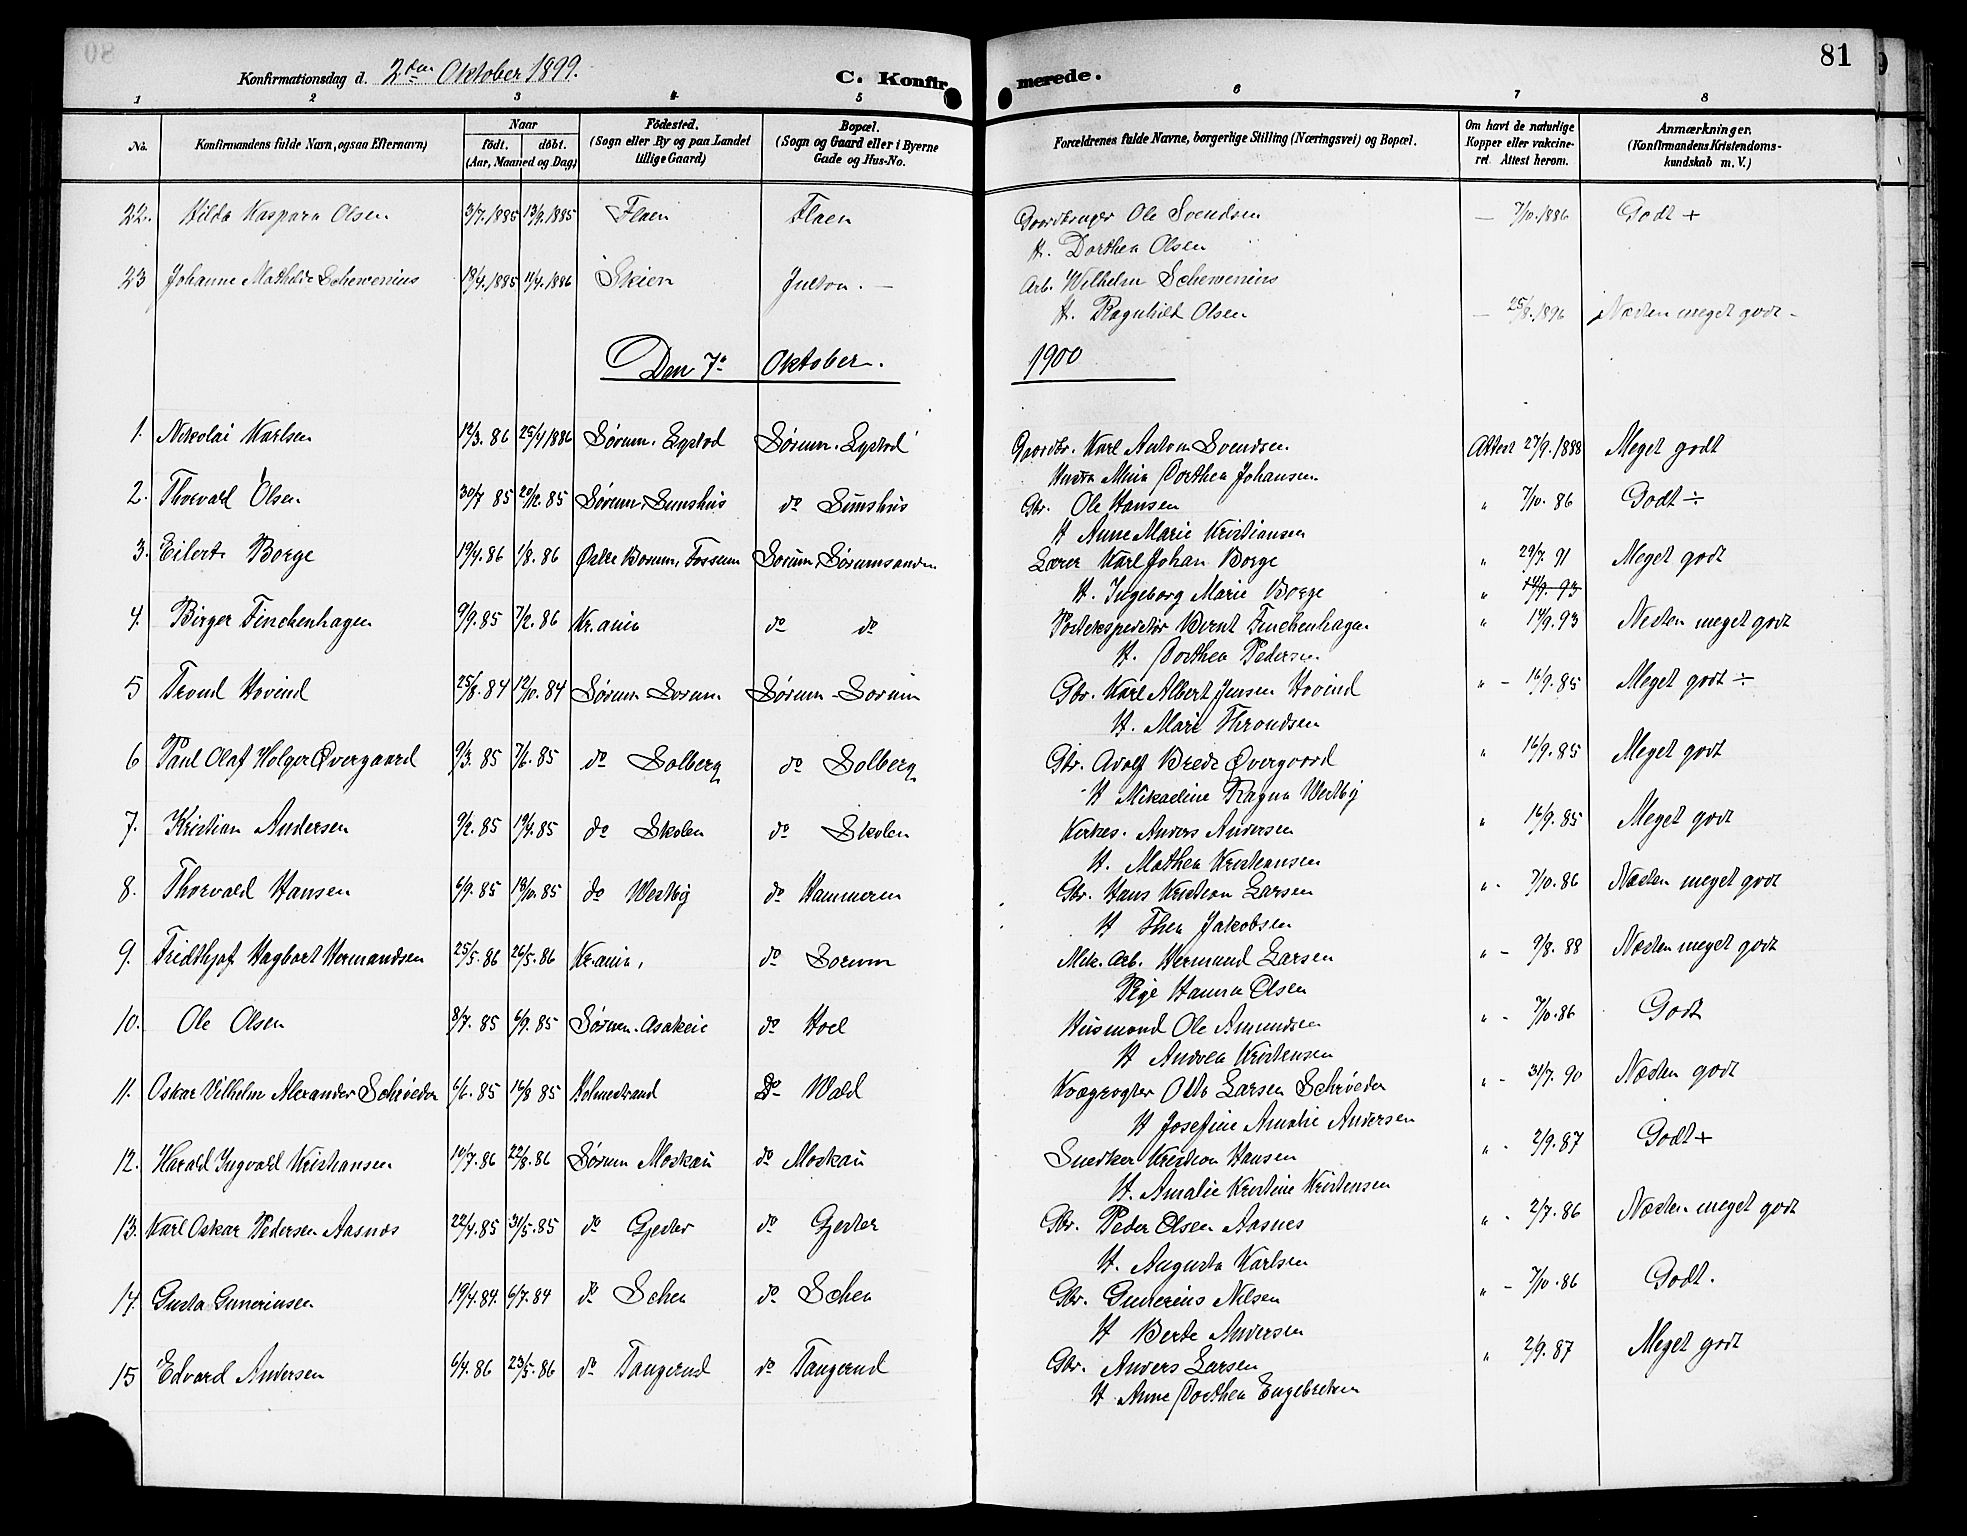 Konfirmationsdag d. 2den Oktober 1899. C. Konfirmerede. 81
1 2 3 4 5 6 7 8
No. Konfirmandens fulde Navn, ogsaa Efternavn) Naar født. døbt. (Aar, Maaned og Dag) Fødested. (Sogn eller By og paa Landet tillige Gaard) Bopæl. (Sogn og Gaard eller i Byerne Gade og Hus-No. Forældrenes fulde Navne, borgerlige Stilling (Næringsvei) og Bopæl. Om havt de naturlige Kopper eller vakcineret. Attest herom. Anmærkninger. (Konfirmandens Kristendomskundskab m. V.)
22. Hilda Kaspara Olsen 3/7.1885 13/9.1885 Flaen Flaen Gaardbruger Ole Svendsen — 7/10.1886 Godt +
H. Dorthea Olsen
23 Johanne Mathilde Schewenius 19/4.1885 11/4.1886 Skien Julton. — Arb. Wilhelm Schewenius
H. Ragnhild Olsen — 25/8.1896 Næsten meget godt –
Den 7de Oktober. 1900
1. Nikolai Karlsen 12/3. 86 25/4 1886 Sørum. Egstad Sørum. Egstad Gaardbr. Karl Anton Svendsen Attest 27/9.1888 Meget godt
Hustru Mina Dorthea Johansen
2. Thorvald Olsen 30/7 85 20/12. 85 Sørum. Sunshus do Sunshus Gbr. Ole Hansen " 7/10. 86 Godt ÷
H Anne Marie Kristiansen
3. Eilert Borge 19/4.86 1/8. 86 Østre Borum, Fossum Sørum, Sørumsanden Lærer Karl Johan Borge " 29/7. 91 Meget godt
H. Ingeborg Marie Borge " 14/9. 93
4. Birger Finchenhagen 9/9.85 7/2. 86 Kr.ania do do Postekspeditør Bernt Finchenhagen " 14/9.93 Nesten meget godt
H. Dorthea Pedersen
5 Trond Hovind 25/8.84 12/10.84 Sørum Sørum Sørum – Sørum Gbr. Karl Albert Jensen Hovind " – 16/9.85 Meget godt ÷
H. Mari Throndsen
6 Paul Olaf Holger Øvergaard 9/3. 85 7/6. 85 do Solberg do Solberg Gbr. Adolf Brede Øvergaard " 16/9.85 Meget godt
H Mikaeline Ragna Westby
7. Kristian Andersen 9/2. 85 19/4.85 do Skolen do Skolen Kirkes. Anders Andersen " 16/9.85 Meget godt
H. Mathea Kristiansen
8. Thorvald Hansen 6/9.85 18/10.85 do Westby do Hammeren Gbr. Hans Kristian Larsen " - 7/10.86 Næsten meget godt
H Thea Jakobsen
9. Fridthjof Hagbart Hermandsen 25/5.86 26/5.86 Kr.ania, do Sørum Mek. Arb. Hermand Larsen " – 9/8. 88 Næsten meget godt
Pige Hanna Olsen
10. Ole Olsen 8/7. 85 6/9. 85 Sørum. Asakeie do Hoel Husmand Ole Amundsen " - 7/10.86 Godt
H Andrea Kristensen
11. Oskar Vilhelm Alexander Schrøder 6/6. 85 16/8 85 Holmestrand Do Wald Kvægrøgter Otto Larsen Schrøder " - 31/7. 90 Næsten godt
H Josefine Amalie Andersen
12. Harald Ingvald Kristiansen 10/7.86 22/8.86 Sørum Moskau do Moskau Snedker Kristian Hansen " - 2/9.87 Godt +
H. Amalie Kristine Kristensen
13. Karl Oskar Pedersen Aasnes 22/4.85 31/5.85 do Gjester do Gjester Gbr. Peder Olsen Aasnes " - 2/7.86 Næsten meget godt
H. Augusta Karlsen
14. Gusta Guneriusen 19/4.84. 6/7.84 do Schea do Schea Gbr. Gunerius Nilsen " – 7/10.86 Godt.
H Berte Andersen
15 Edvard Andersen 6/4. 86 23/5.86 do Tangerud do Tangerud Gbr. Anders Larsen " 2/9.87 Meget godt
H Anne Dorthea Engebretsen